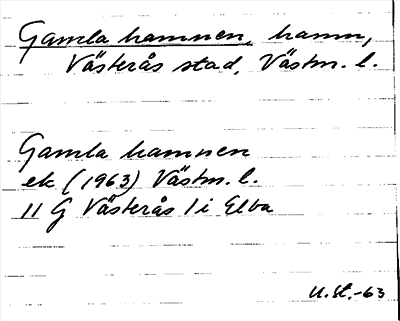 Gamla hamnen, hamn,
Västerås stad, Västm. l.
Gamla hamnen
ek (1963) Västm. l.
11 G Västerås 1 i Elba
U. St.-63